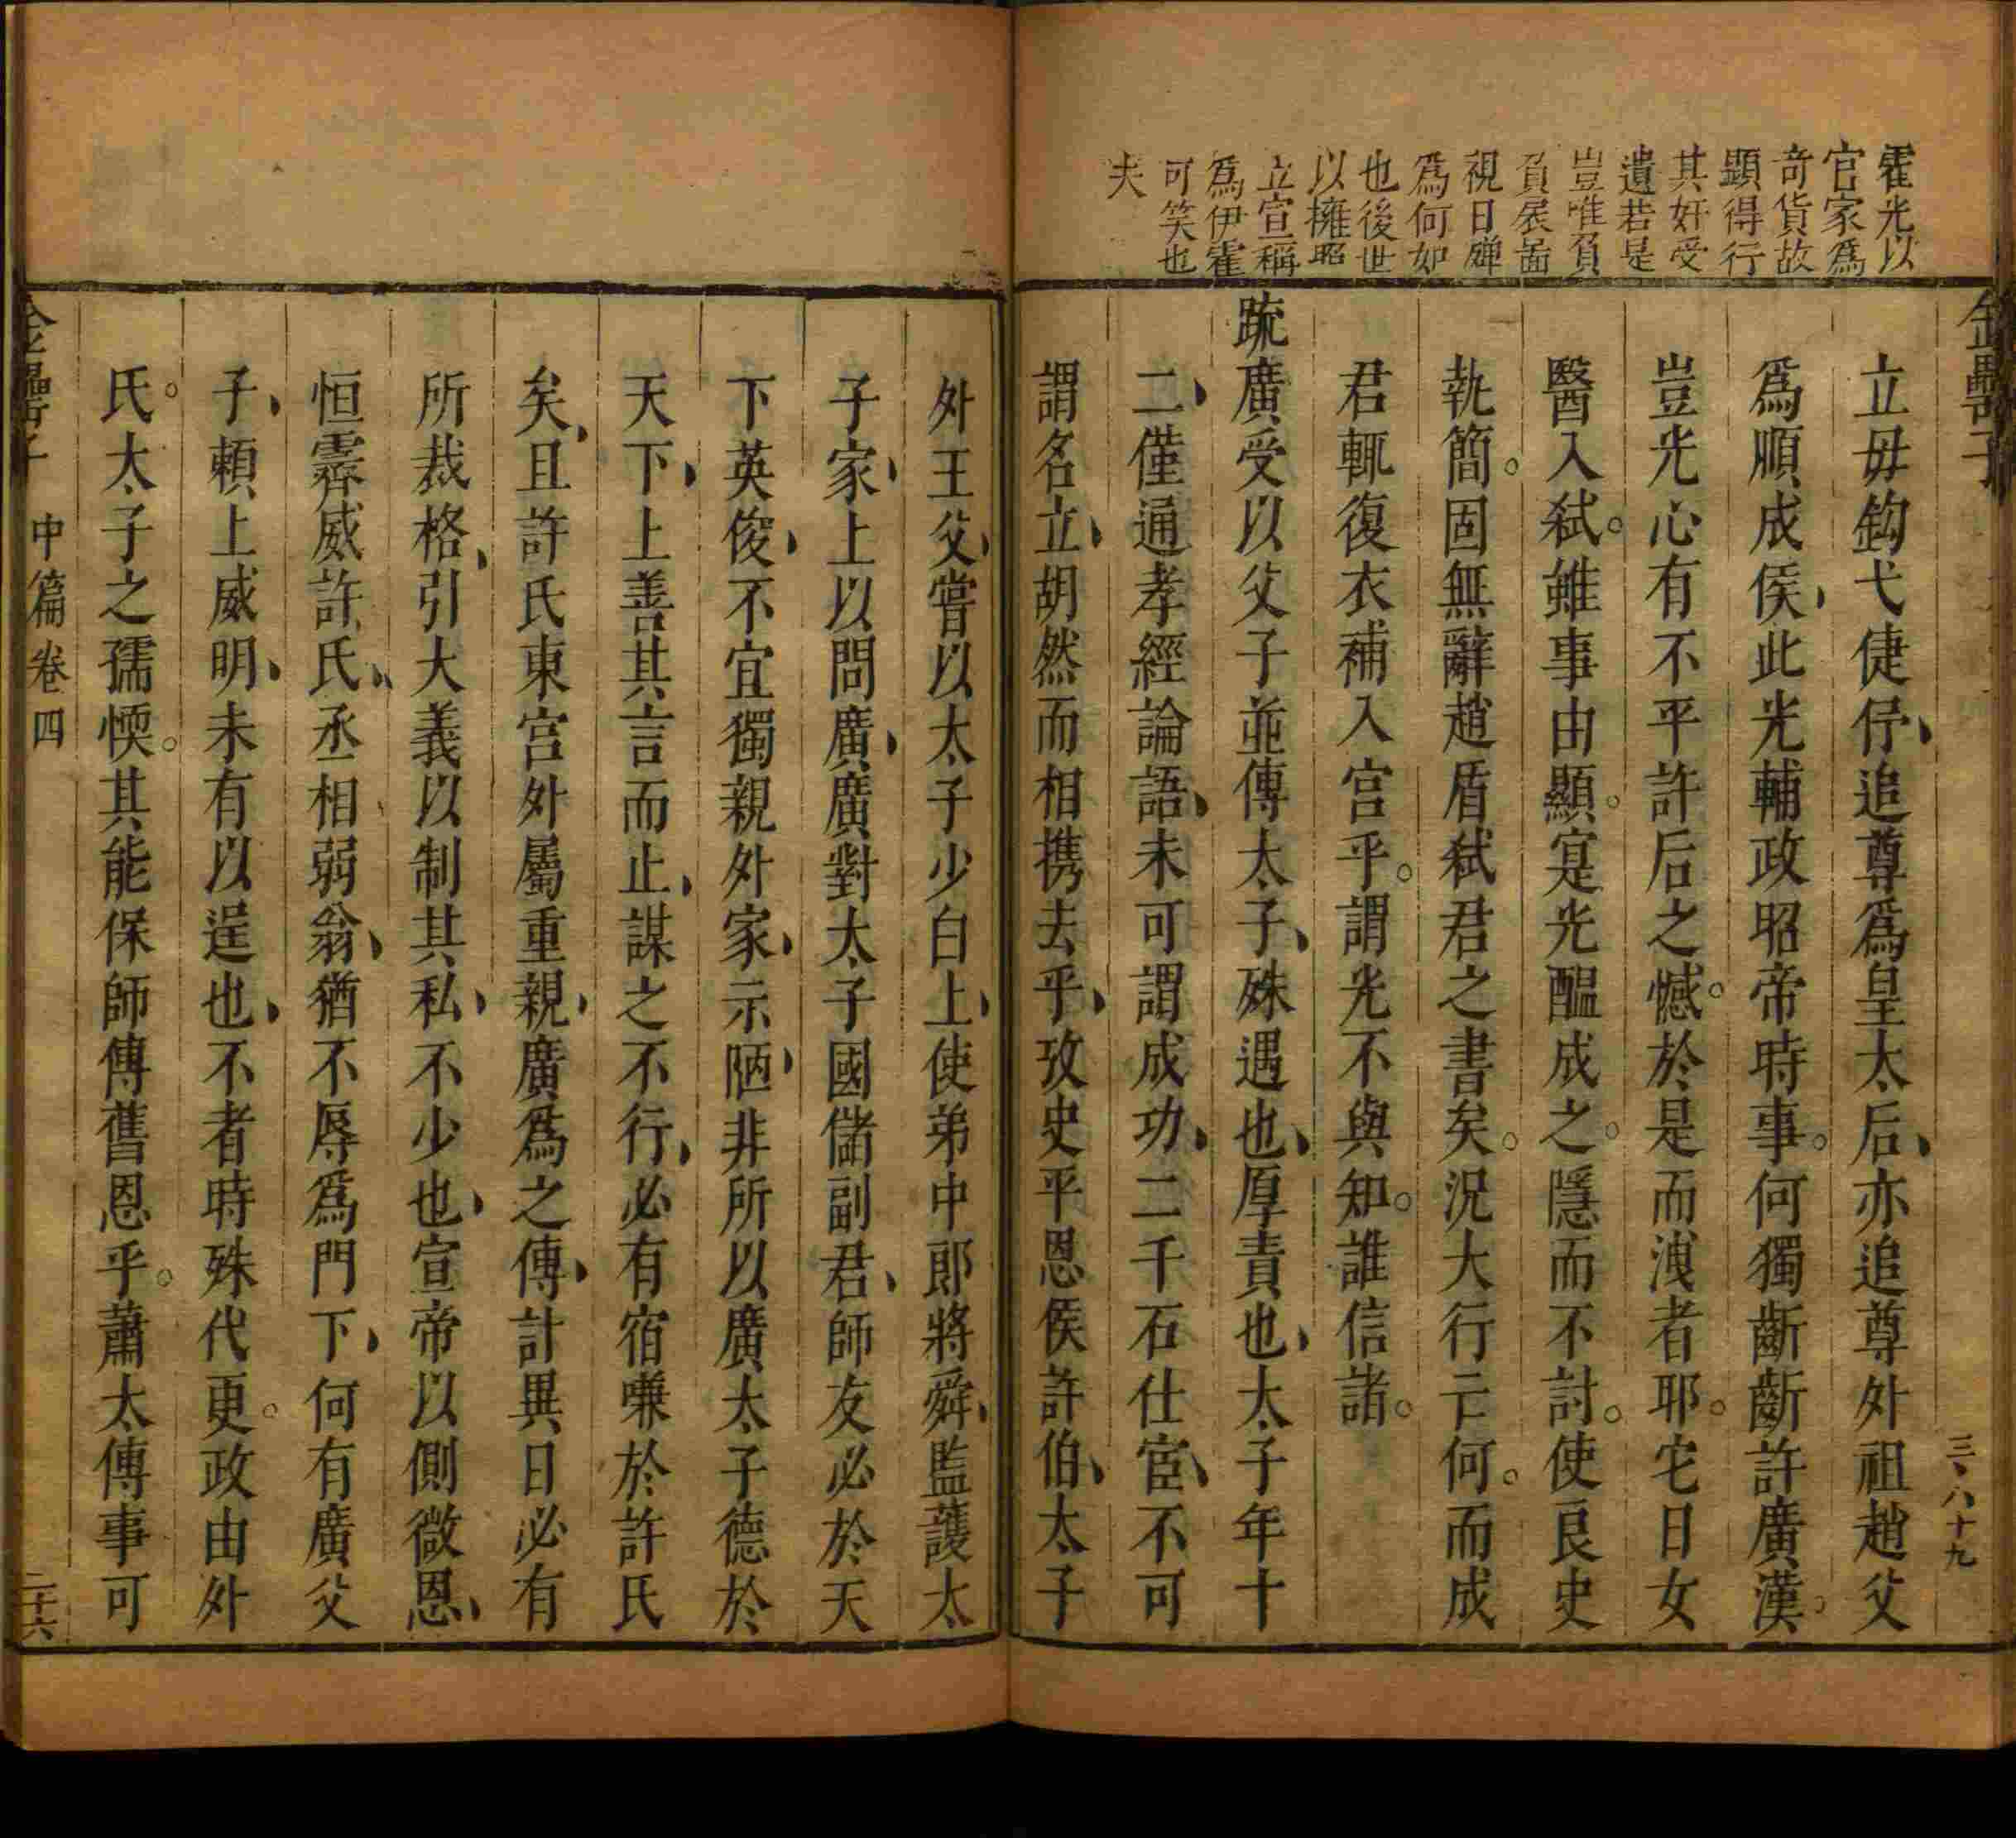 霍光以
官家爲
奇貨故
顯得行
其奸受
遺若是
豈唯負
負扆啚
視日磾
爲何如
也後世
以擁昭
立宣稱
爲伊霍
可笑也
夫
金罍子
三八十九
立毋鈎弋倢伃追尊爲皇太后亦追尊外祖趙父
爲順成侯此光輔政昭帝時事何獨齗齗許廣漢
豈光心有不平許后之憾於是而洩者耶它日女
醫入弑雖事由顯寔光醞成之隱而不討使良史
執簡固無辭趙盾弑君之書矣況大行亡何而成
君輒復衣補入宫乎謂光不與知誰信諸
疏廣受以父子並傳太子殊遇也厚責也太子年十
二僅通孝經論語未可謂成功二千石仕宦不可
謂名立胡然而相携去乎攷史平恩侯許伯太子
外王父嘗以太子少白上使弟中郎將舜監護太
子家上以問廣廣對太子國儲副君師友必於天
下英俊不宜獨親外家示陋非所以廣太子德於
天下上善其言而止謀之不行必有宿嗛於許氏
矣且許氏東宫外屬重親廣爲之傳計異日必有
所裁格引大義以制其私不少也宣帝以側微恩
恒霽威許氏丞相弱翁猶不辱爲門下何有廣父
子頼上威明未有以逞也不者時殊代更政由外
氏太子之孺愞其能保師傅舊恩乎蕭太傅事可
金罍子
中篇卷四
二十六